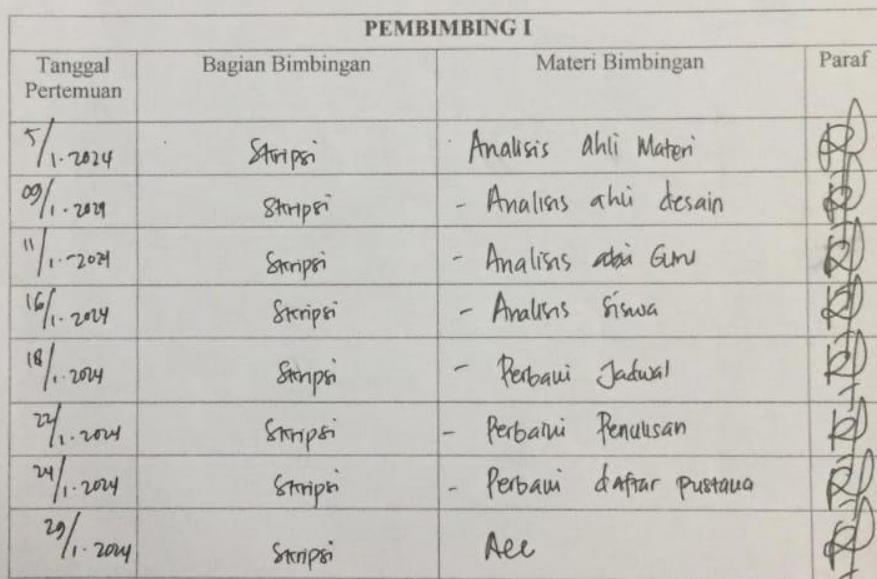 PEMBIMBING I
Tanggal Pertemuan Bagian Bimbingan Materi Bimbingan Paraf
5/1.2024 Skripsi Analisis ahli Materi
09/1.2024 Skripsi - Analisis ahli desain
11/1.-2024 Skripsi - Analisis Guru
16/1.2024 Skripsi - Analisis Siswa
18/1.2024 Skripsi - Perbaiki Jadwal
22/1.2024 Skripsi - Perbaiki Penulisan
24/1.2024 Skripsi - Perbaiki daftar pustaka
29/1.2024 Skripsi Acc